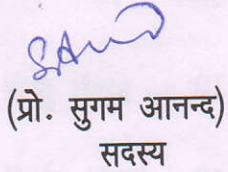 (प्रो. सुगम आनन्द)
सदस्य